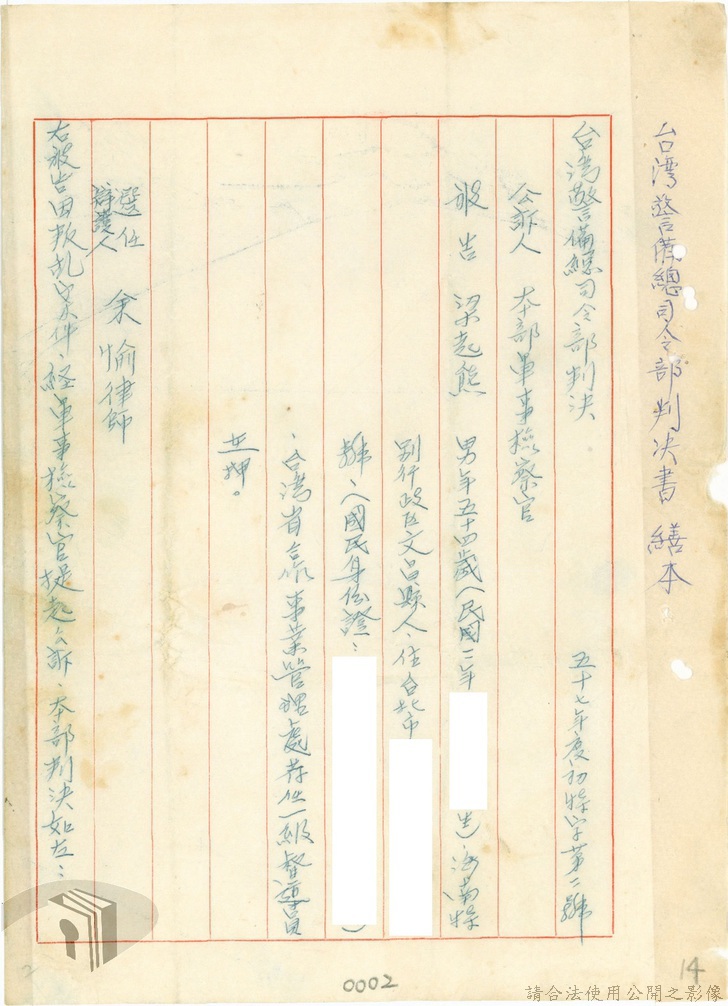 台湾警備總司令部判决書 繕本
台湾警備總司令部判决
五十七年度初特字第二號
公訴人 本部軍事檢察官
被告 梁起熊 男年五十四歲(民國二年
生)海南特
別行政區文昌縣人、住台北市
號、(國民身份證:
)
、台灣省合作事業管理處荐任一級督導員
在押。
選任
辯護人 余愉律師
右被告因叛乱案件、経軍事檢察官提起公訴、本部判决如左:
0002
14
2
請合法使用公開之影像